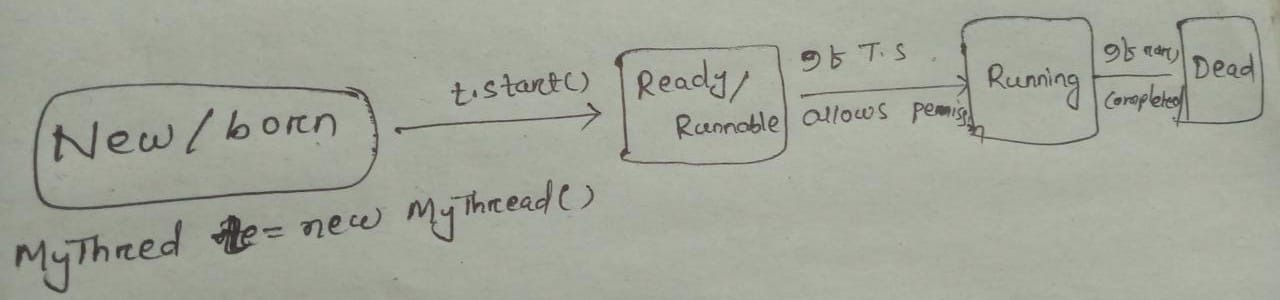 New/born
t.start()
Ready/
Runnable
If T.S
allows permissn
Running
If run()
Completed
Dead
MyThred = new MyThread()